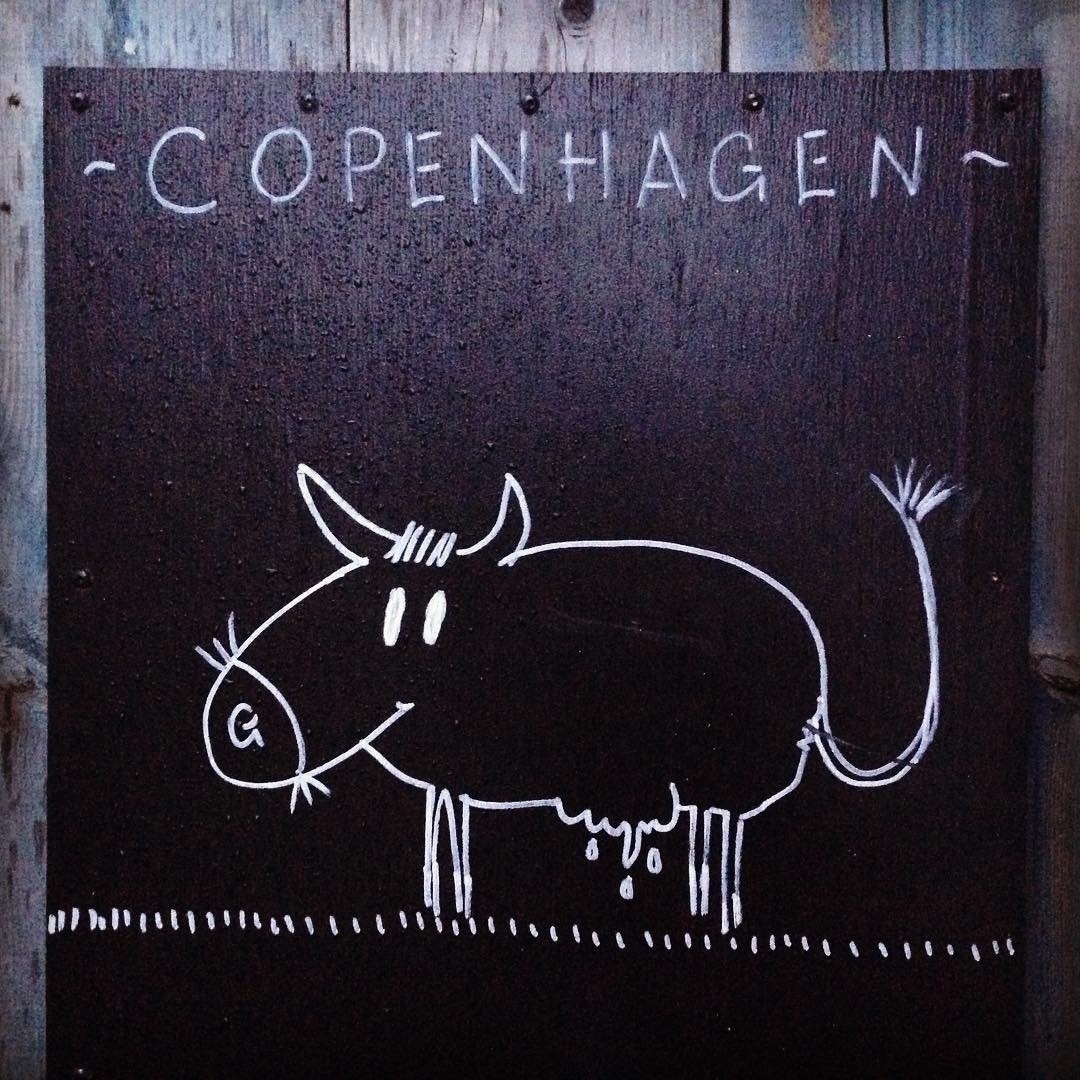 ~ COPENHAGEN ~
G